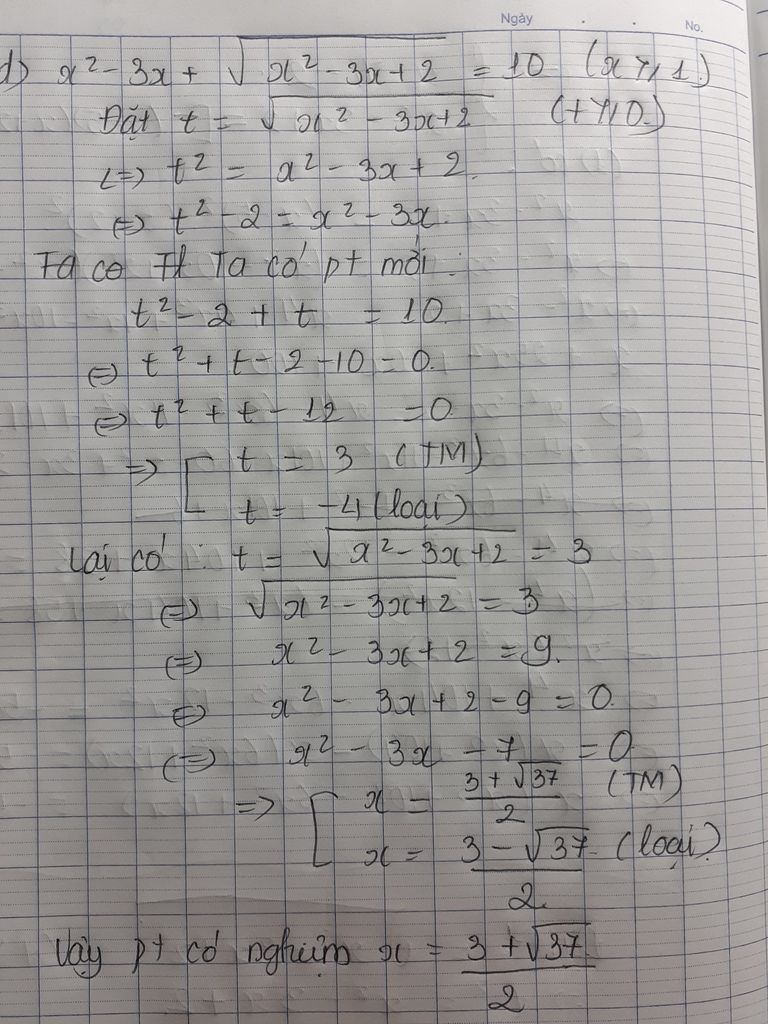 Ngày . . No.
d) x² - 3x + √(x² - 3x + 2) = 10 (x ⩾ 1)
Đặt t = √(x² - 3x + 2) (t ⩾ 0)
<=> t² = x² - 3x + 2
<=> t² - 2 = x² - 3x
Ta co Ta có pt mới :
t² - 2 + t = 10
<=> t² + t - 2 - 10 = 0
<=> t² + t - 12 = 0
=> [ t = 3 (TM)
t = -4 (loại)
Lại có : t = √(x² - 3x + 2) = 3
<=> √(x² - 3x + 2) = 3
<=> x² - 3x + 2 = 9
<=> x² - 3x + 2 - 9 = 0
<=> x² - 3x - 7 = 0
=> [ x = (3 + √37)/2 (TM)
x = (3 - √37)/2 (loại)
Vậy pt có nghiệm x = (3 + √37)/2